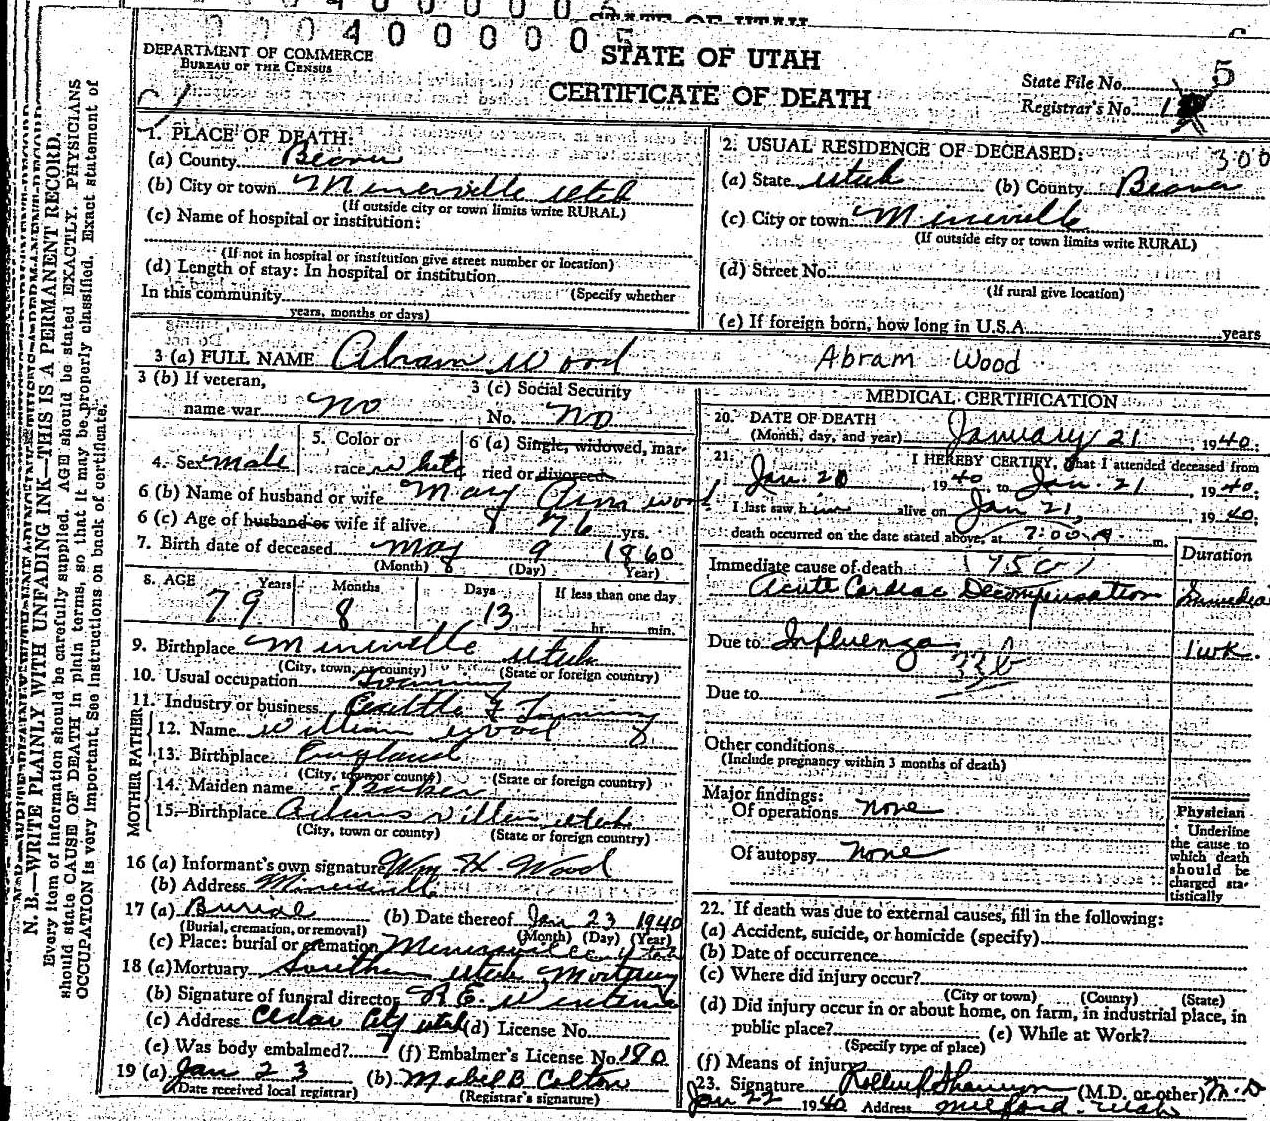 0 0 4 0 0 0 0 0 5
STATE OF UTAH
CERTIFICATE OF DEATH
DEPARTMENT OF COMMERCE
BUREAU OF THE CENSUS
State File No. 5
Registrar's No. 1
N. B.—WRITE PLAINLY WITH UNFADING INK—THIS IS A PERMANENT RECORD.
Every item of information should be carefully supplied. AGE should be stated EXACTLY. PHYSICIANS
should state CAUSE OF DEATH in plain terms, so that it may be properly classified. Exact statement of
OCCUPATION is very important. See instructions on back of certificate.
1. PLACE OF DEATH:
(a) County Beaver
(b) City or town Minersville Utah
(If outside city or town limits write RURAL)
(c) Name of hospital or institution:
(If not in hospital or institution give street number or location)
(d) Length of stay: In hospital or institution
In this community (Specify whether
years, months or days)
2. USUAL RESIDENCE OF DECEASED: 300
(a) State Utah (b) County Beaver
(c) City or town Minersville
(If outside city or town limits write RURAL)
(d) Street No.
(If rural give location)
(e) If foreign born, how long in U.S.A. years
3 (a) FULL NAME Abram Wood Abram Wood
3 (b) If veteran,
name war No
3 (c) Social Security
No. No
4. Sex male
5. Color or
race white
6 (a) Single, widowed, mar-
ried or divorced
6 (b) Name of husband or wife Mary Ann Wood
6 (c) Age of husband or wife if alive 76 yrs.
7. Birth date of deceased May 9 1860
(Month) 8 (Day) Year)
8. AGE Years Months Days If less than one day
79 8 13 hr. min.
9. Birthplace Minersville Utah
(City, town, or county) (State or foreign country)
10. Usual occupation Farming
11. Industry or business Cattle & Farming
FATHER
12. Name William Wood
13. Birthplace England
(City, town or county) (State or foreign country)
MOTHER
14. Maiden name Baker
15. Birthplace Adamsville Utah
(City, town or county) (State or foreign country)
16 (a) Informant's own signature Wm. H. Wood
(b) Address Minersville
17 (a) Burial (b) Date thereof Jan 23 1940
(Burial, cremation, or removal) (Month) (Day) (Year)
(c) Place: burial or cremation Minersville Utah
18 (a) Mortuary Southern Utah Mortuary
(b) Signature of funeral director
(c) Address Cedar City Utah (d) License No.
(e) Was body embalmed? (f) Embalmer's License No. 180
19 (a) Jan 23 (b) Mabel B. Colton
(Date received local registrar) (Registrar's signature)
MEDICAL CERTIFICATION
20. DATE OF DEATH
(Month, day, and year) January 21, 1940;
21. I HEREBY CERTIFY, that I attended deceased from
Jan. 20, 1940 to Jan. 21, 1940;
I last saw him alive on Jan 21, 1940;
death occurred on the date stated above, at 7:00 A m.
Immediate cause of death (95c) Duration
Acute Cardiac Decompensation
Due to Influenza 1 wk.
33b
Due to
Other conditions
(Include pregnancy within 3 months of death)
Major findings:
Of operations None
Of autopsy None
Physician
Underline
the cause to
which death
should be
charged sta-
tistically
22. If death was due to external causes, fill in the following:
(a) Accident, suicide, or homicide (specify)
(b) Date of occurrence
(c) Where did injury occur?
(City or town) (County) (State)
(d) Did injury occur in or about home, on farm, in industrial place, in
public place? (e) While at Work?
(Specify type of place)
(f) Means of injury
23. Signature (M.D. or other) M.D
Jan 22 1940 Address Milford. Utah